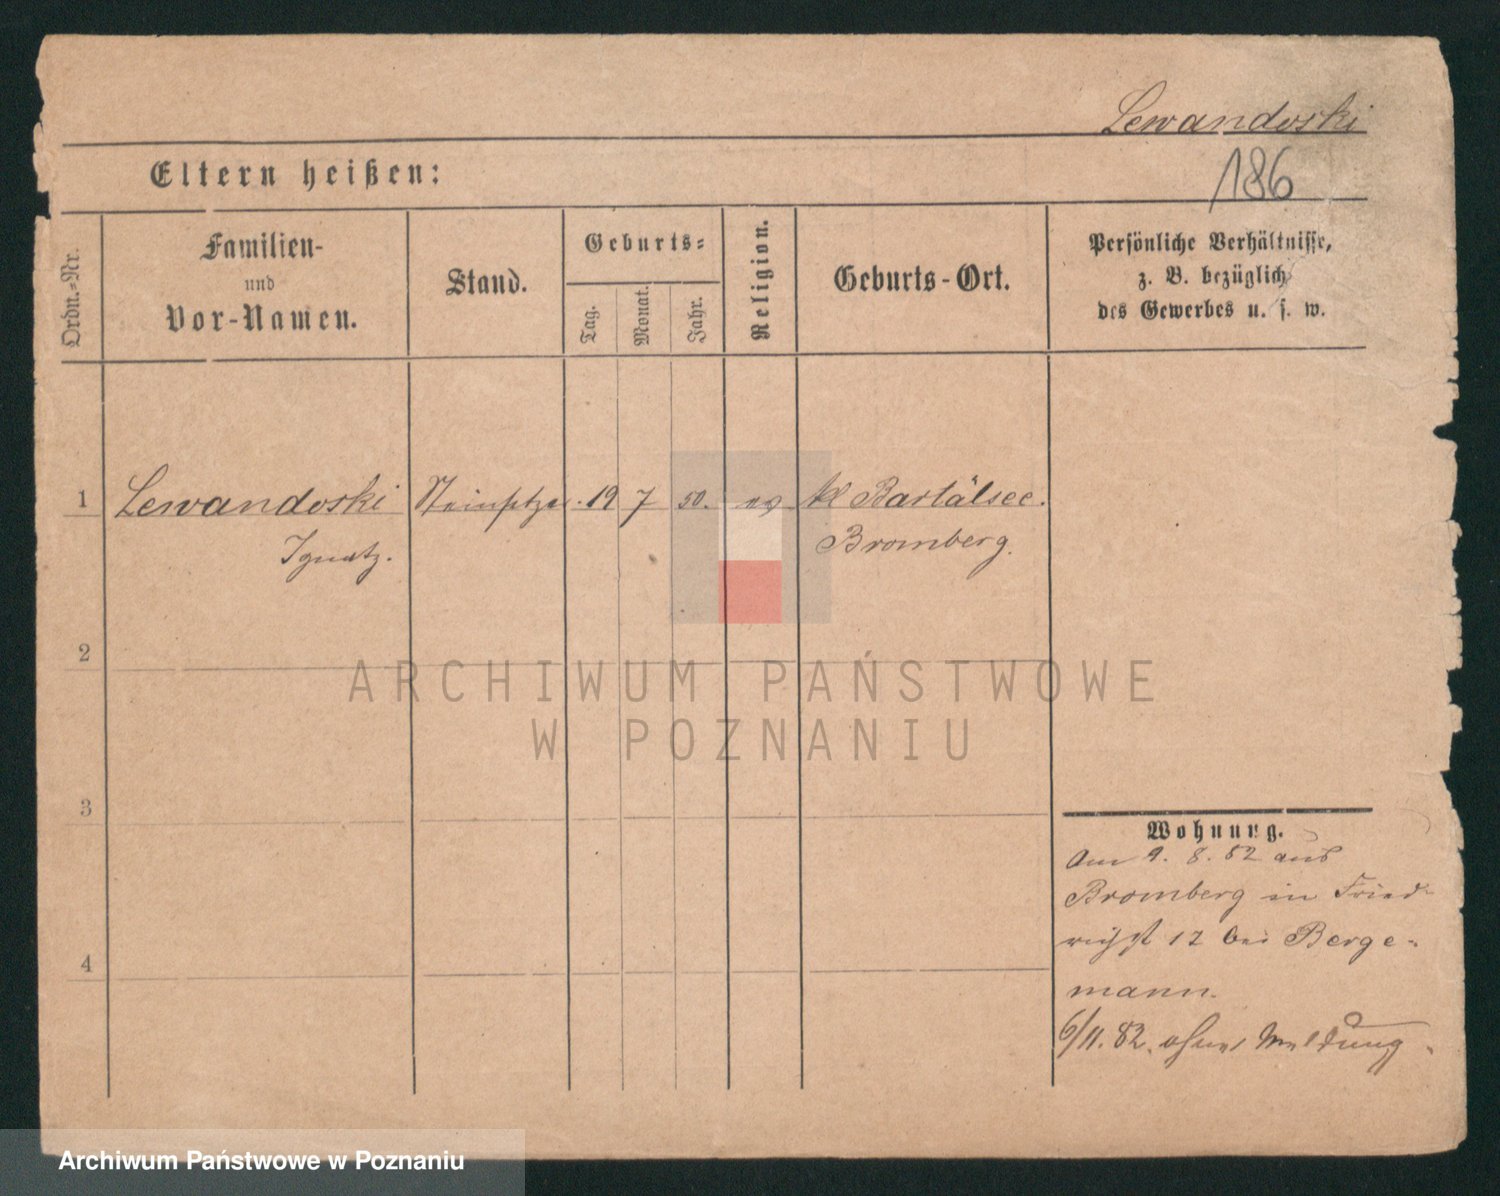 Lewandoski
Eltern heißen:
186
Ordn.-Nr.
Familien-
und
Vor-Namen.
Stand.
Geburts-
Tag.
Monat.
Jahr.
Religion.
Geburts-Ort.
Persönliche Verhältnisse,
z. B. bezüglich
des Gewerbes u. s. w.
1 Lewandoski Steinsetzer 19 7 50. ev Kl Bartälsee.
Ignatz. Bromberg.
2
3
4
Wohnung.
Am 9. 8. 82 aus
Bromberg in Fried-
richst 12 bei Berge-
mann.
6/11. 82. ohne Meldung.
ARCHIWUM PAŃSTWOWE
W POZNANIU
Archiwum Państwowe w Poznaniu